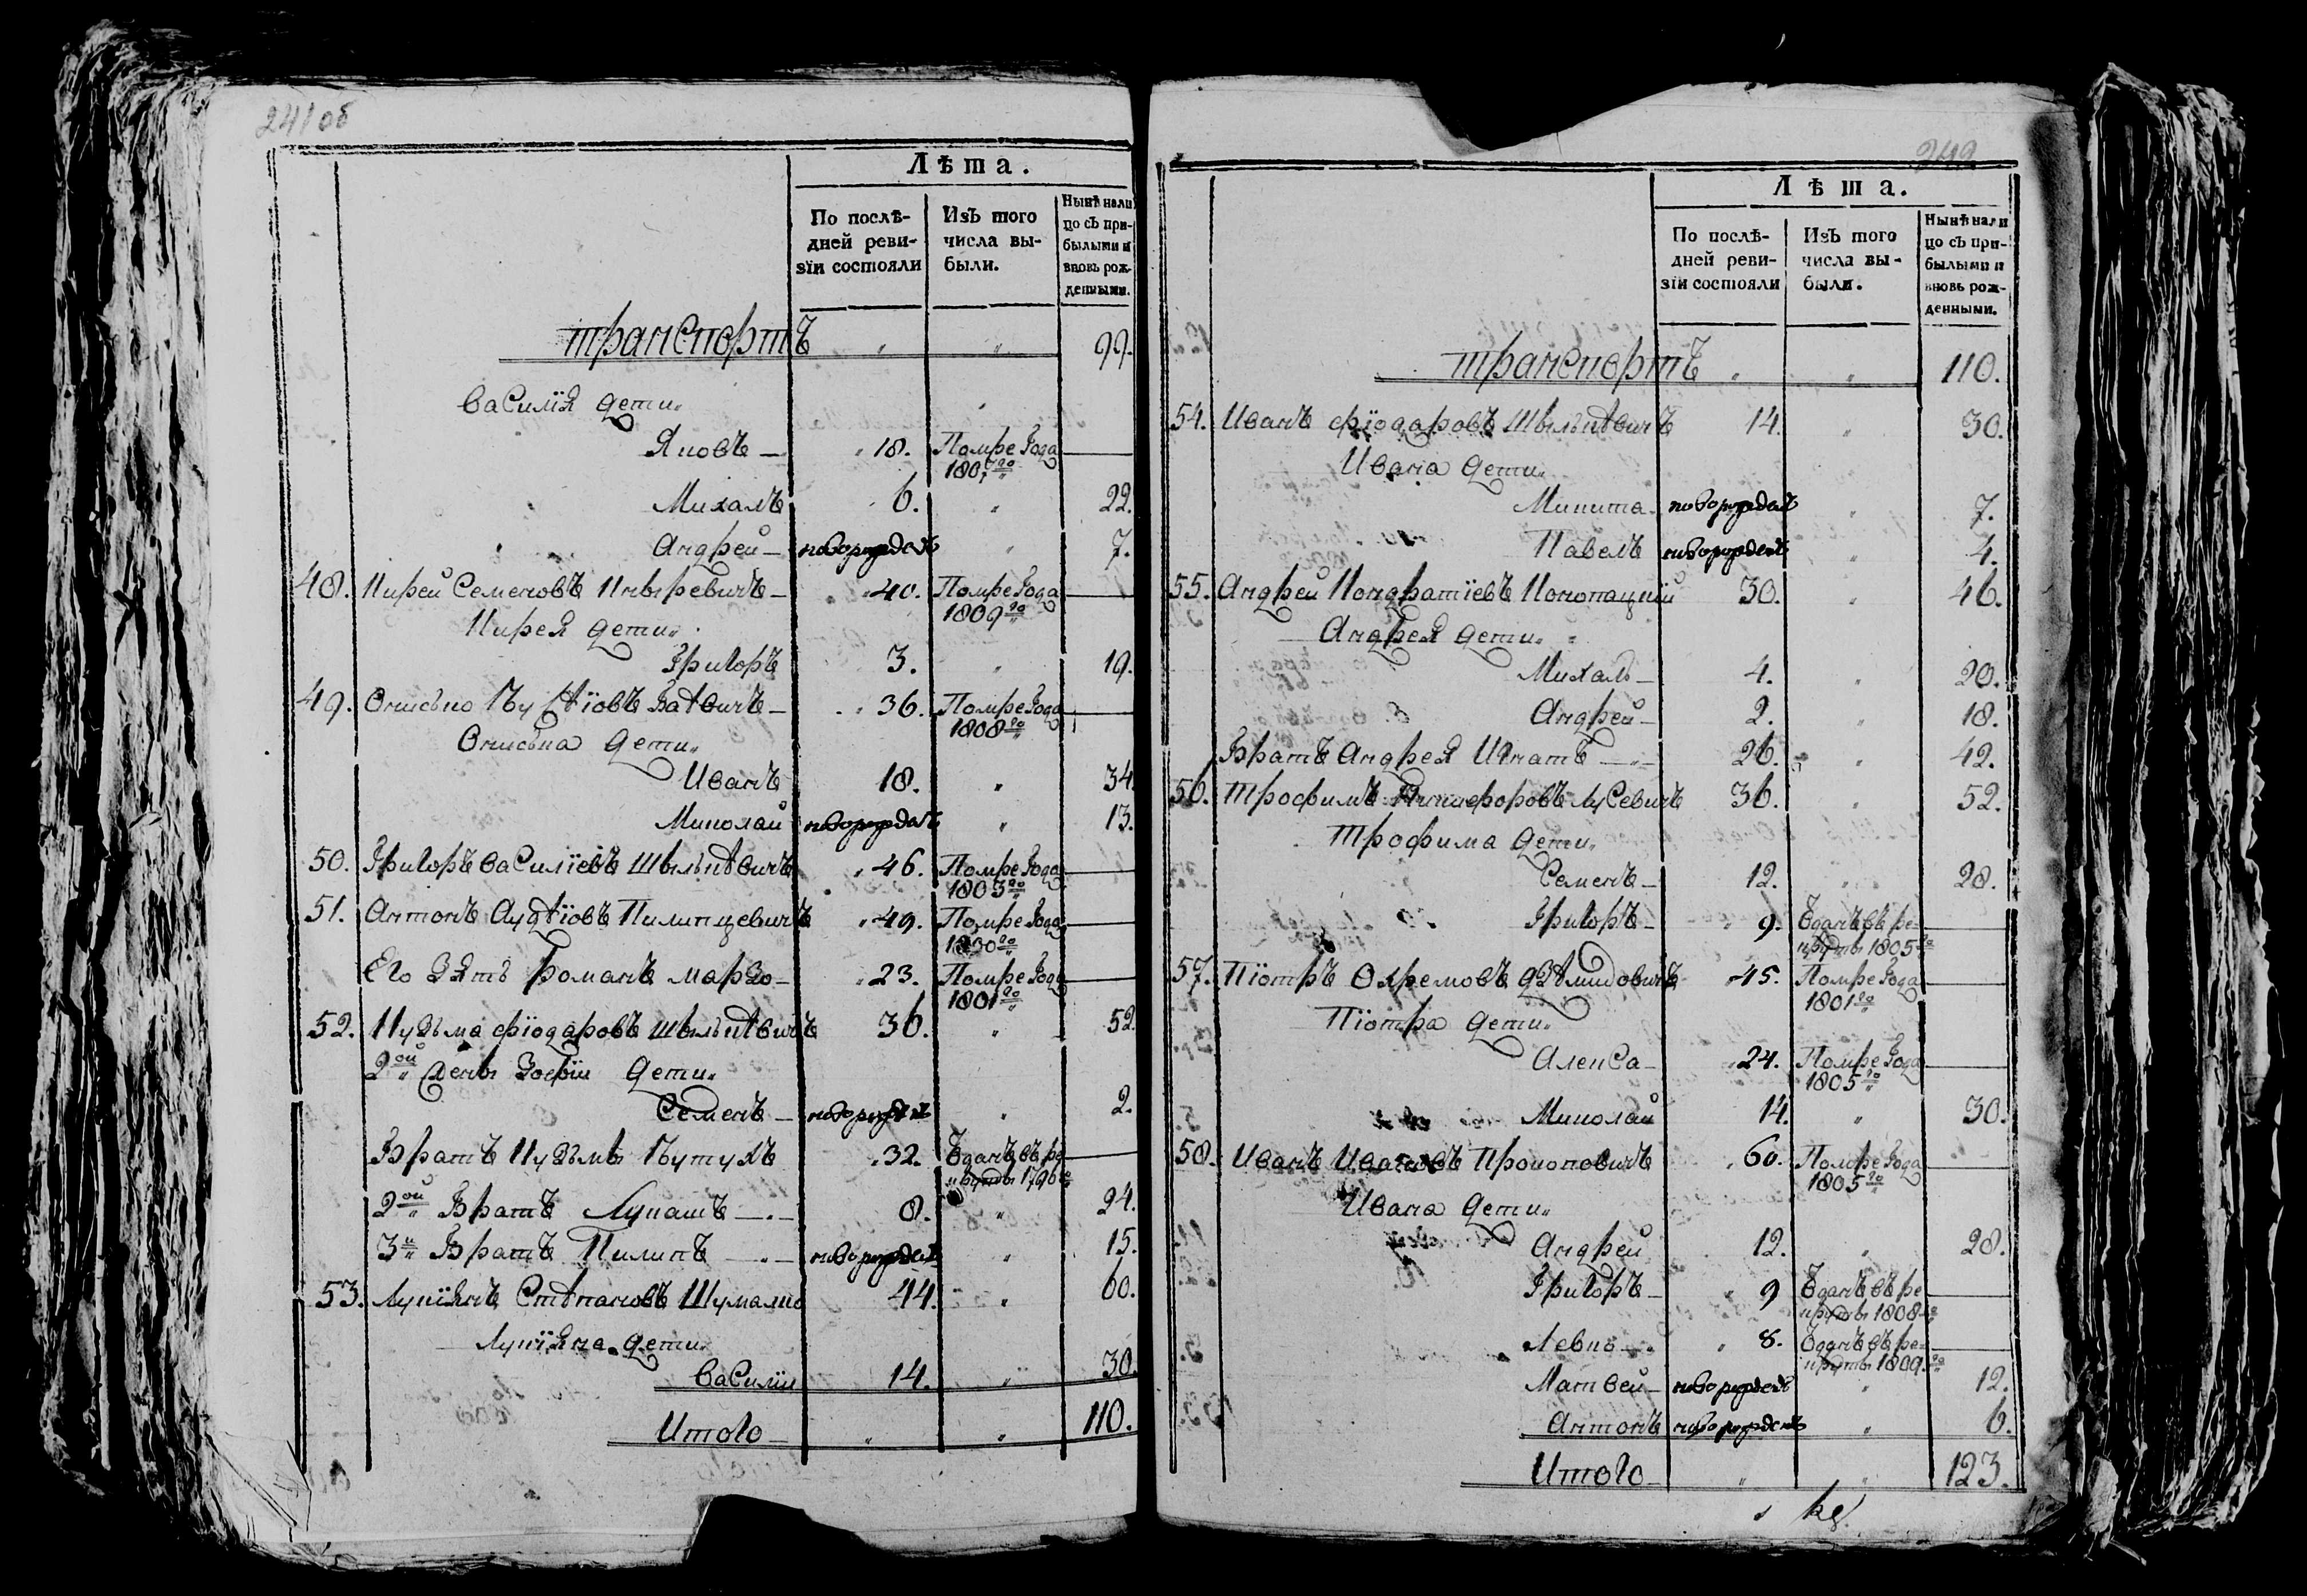 241 об
Лѣта.
По послѣ-
дней реви-
зїи состояли
Изъ того
числа вы-
были.
Нынѣ нали
цо съ при-
былыми и
вновь рож-
денными.
транспортъ " " 99.
Василїя дети"
Яковъ — 18. Помре года
180 го
Михалъ 6. " 22.
Андрей — новорожденъ " 7.
48. Кирей Семеновъ — 40. Помре года
1809го
Кирея дети"
Григоръ 3. " 19.
49. 36. Помре года
1808го
дети"
Иванъ 18. " 34
Миколай новорожденъ " 13.
50. Григоръ Василїевъ 46. Помре года
1803го
51. Антонъ Пилипцевичъ 49. Помре года
го
Его Зять Романъ — 23. Помре года
1801го
52. Кузьма Фїодаровъ 36. " 52.
2ой жены Зофїи дети"
Семенъ — новорожденъ " 2.
Братъ Кузьмы 32. Ѿданъ въ ре
круты 1796
2ой Братъ Лукашъ — 8. " 24.
3й Братъ Пилипъ — новорожденъ " 15.
53. Лукїянъ Стѣпановъ 44. " 60.
Лукїяна дети"
Василїи 14. " 30.
Итого — " " 110.
242
Лѣта.
По послѣ-
дней реви-
зїи состояли
Изъ того
числа вы-
были.
Нынѣ нали
цо съ при-
былыми и
вновь рож-
денными.
транспортъ " " 110.
54. Иванъ Фїодаровъ 14. " 30.
Ивана дети"
Микита новорожденъ " 7.
Павелъ новорожденъ " 4.
55. Андрей Кондратїевъ Конопацкїй 30. " 46.
Андрея дети"
Михалъ — 4. " 20.
Андрей — 2. " 18.
Братъ Андрея Игнатъ — 26. " 42.
56. Трофимъ Лусевичъ 36. " 52.
Трофима дети"
Семенъ — 12. " 28.
Григоръ — 9. Ѿданъ въ ре-
круты 1805го
57. Пїотръ Охремовъ 45. Помре года
1801го
Пїотра дети"
Алекса — 24. Помре года
1805го
Миколай 14. " 30.
58. Иванъ Ивановъ Прокоповичъ 60. Помре года
1805го
Ивана дети"
Андрей 12. " 28.
Григоръ — 9 Ѿданъ въ ре
круты 1808го
Левко — 8. Ѿданъ въ ре-
круты 1809го
Матвей — новорожденъ " 12.
Антонъ новорожденъ " 6.
Итого — " " 123.